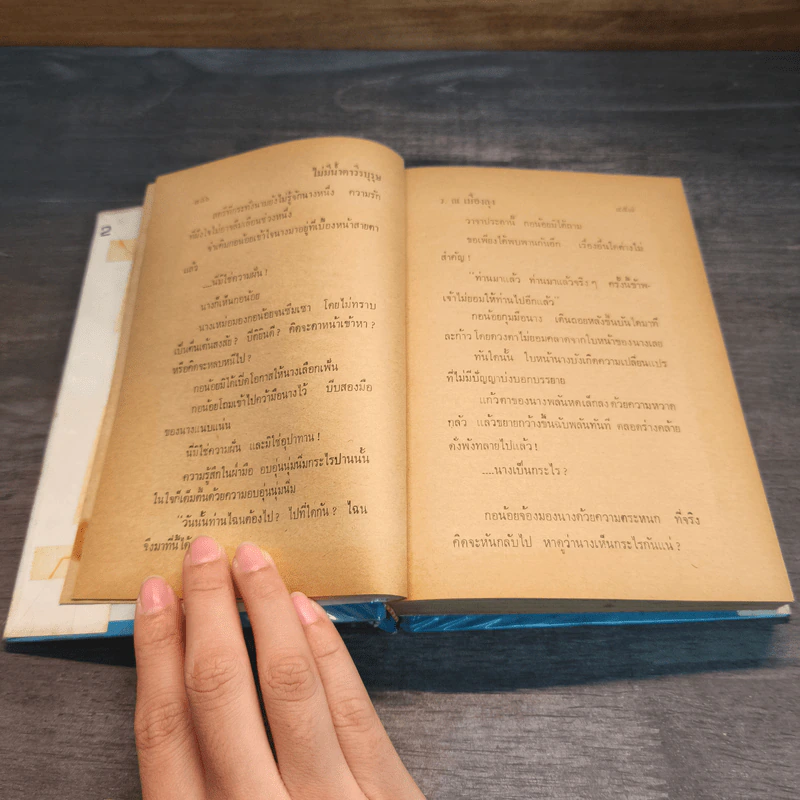 2
ไม่มีน้ำตาวีรบุรุษ
สตรีที่กระทำนางยังไม่รู้จักนางหนึ่ง ความรัก
แล้ว
....นี่มิใช่ความฝัน!
นางก็เห็นกอน้อย
นางเหม่อมองกอน้อยจนซึมเซา โดยไม่ทราบ
เป็นตื่นเต้นสงสัย? ปีติยินดี? คิดจะคาหน้าเข้าหา?
หรือคิดจะหลบหนีไป?
กอน้อยมิได้เปิดโอกาสให้นางเลือกเฟ้น
กอน้อยโถมเข้าไปคว้ามือนางไว้ บีบสองมือ
ของนางแนบแน่น
นี่มิใช่ความฝัน และมิใช่อุปาทาน!
ความรู้สึกในฝ่ามือ อบอุ่นนุ่มนิ่มกระไรปานนั้น
ในใจก็เต็มตื้นด้วยความอบอุ่นนุ่มนิ่ม
"วันนั้นท่านไฉนต้องไป? ไปที่ใดกัน? ไฉน
จึงมาที่นี้ได้
ว. ณ เมืองลุง
วาจาประดานี้ กอน้อยมิได้ถาม
ขอเพียงได้พบพานกันอีก เรื่องอื่นใดต่างไม่
สำคัญ!
"ท่านมาแล้ว ท่านมาแล้วจริงๆ ครั้งนี้ข้าพ-
เจ้าไม่ยอมให้ท่านไปอีกแล้ว"
กอน้อยกุมมือนาง เดินถอยหลังขึ้นบันไดมาที
ละก้าว โดยดวงตาไม่ยอมคลาดจากใบหน้าของนางเลย
ทันใดนั้น ใบหน้านางบังเกิดความเปลี่ยนแปร
ที่ไม่มีปัญญาบ่งบอกบรรยาย
แก้วตาของนางพลันหดเล็กลงด้วยความหวาด
กลัว แล้วขยายกว้างขึ้นฉับพลันทันที ตลอดร่างคล้าย
ดั่งพังทลายไปแล้ว!
....นางเป็นกระไร?
กอน้อยจ้องมองนางด้วยความตระหนก ที่จริง
คิดจะหันกลับไป หาดูว่านางเห็นกระไรกันแน่?